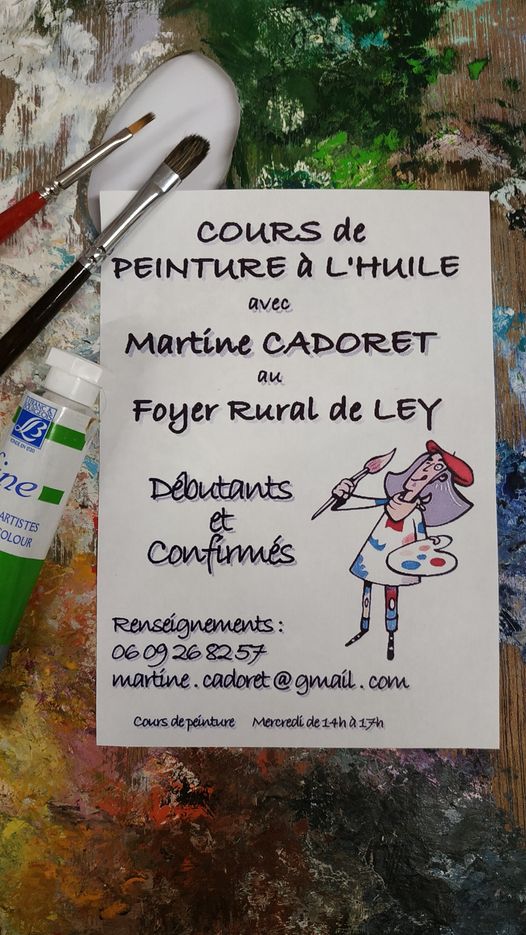 COURS de
PEINTURE à L'HUILE
avec
Martine CADORET
au
Foyer Rural de LEY
Débutants
et
Confirmés
Renseignements :
06 09 26 82 57
martine.cadoret@gmail.com
Cours de peinture Mercredi de 14h à 17h
LB
fine
ARTISTES
COLOUR